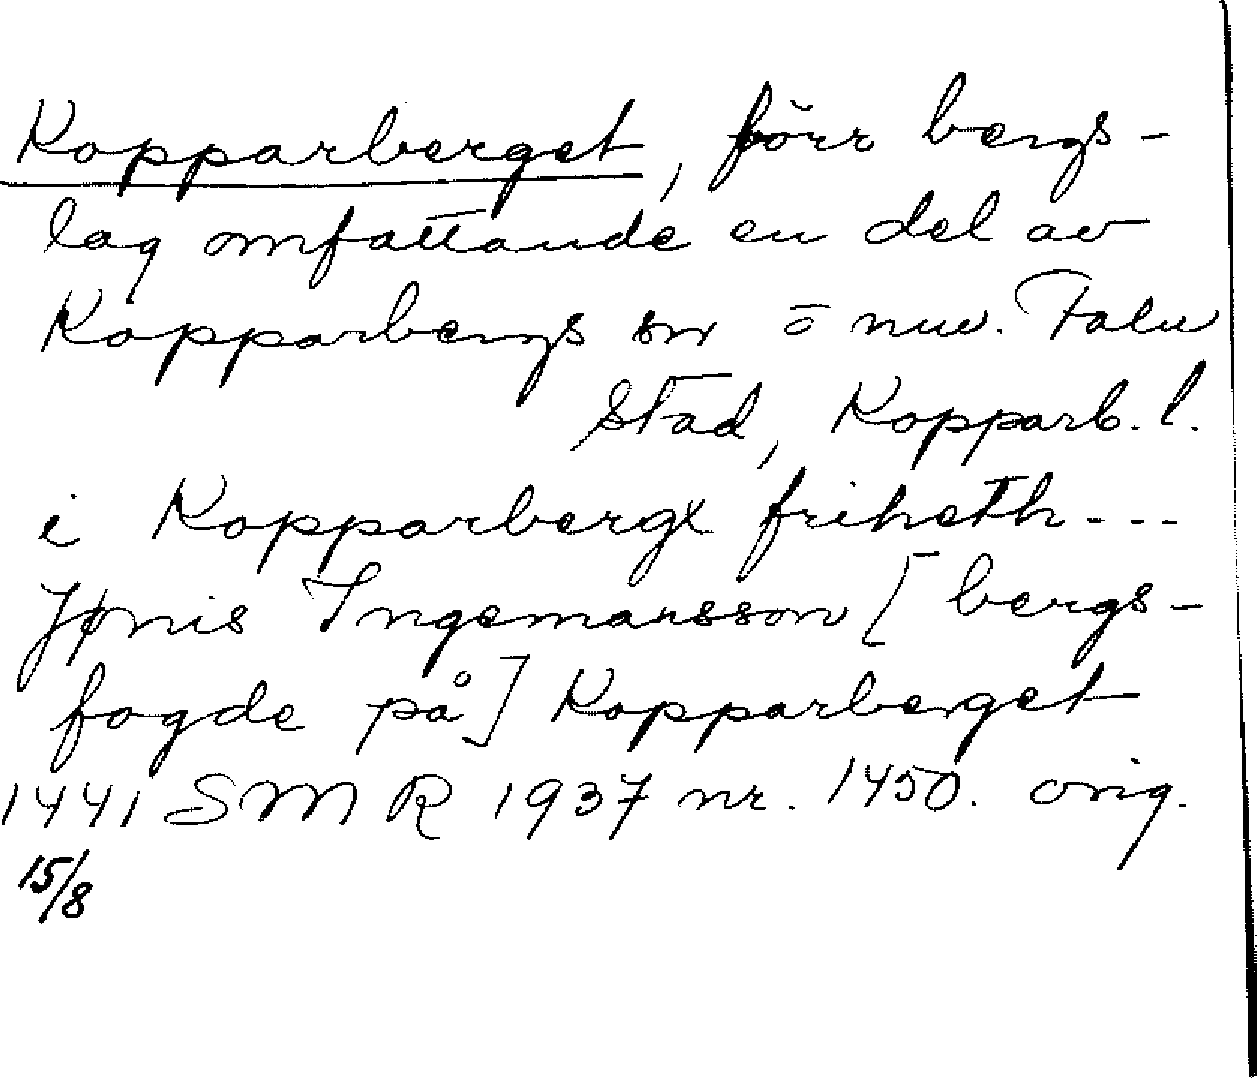 Kopparberget, förr bergs-
lag omfattande en del av
Kopparbergs sn o nuv. Falu
stad, Kopparb. l.
i Kopparbergx friheth ---
Jønis Ingemarsson [bergs-
fogde på] Kopparberget
1441 SMR 1937 nr. 1450. orig.
15/8